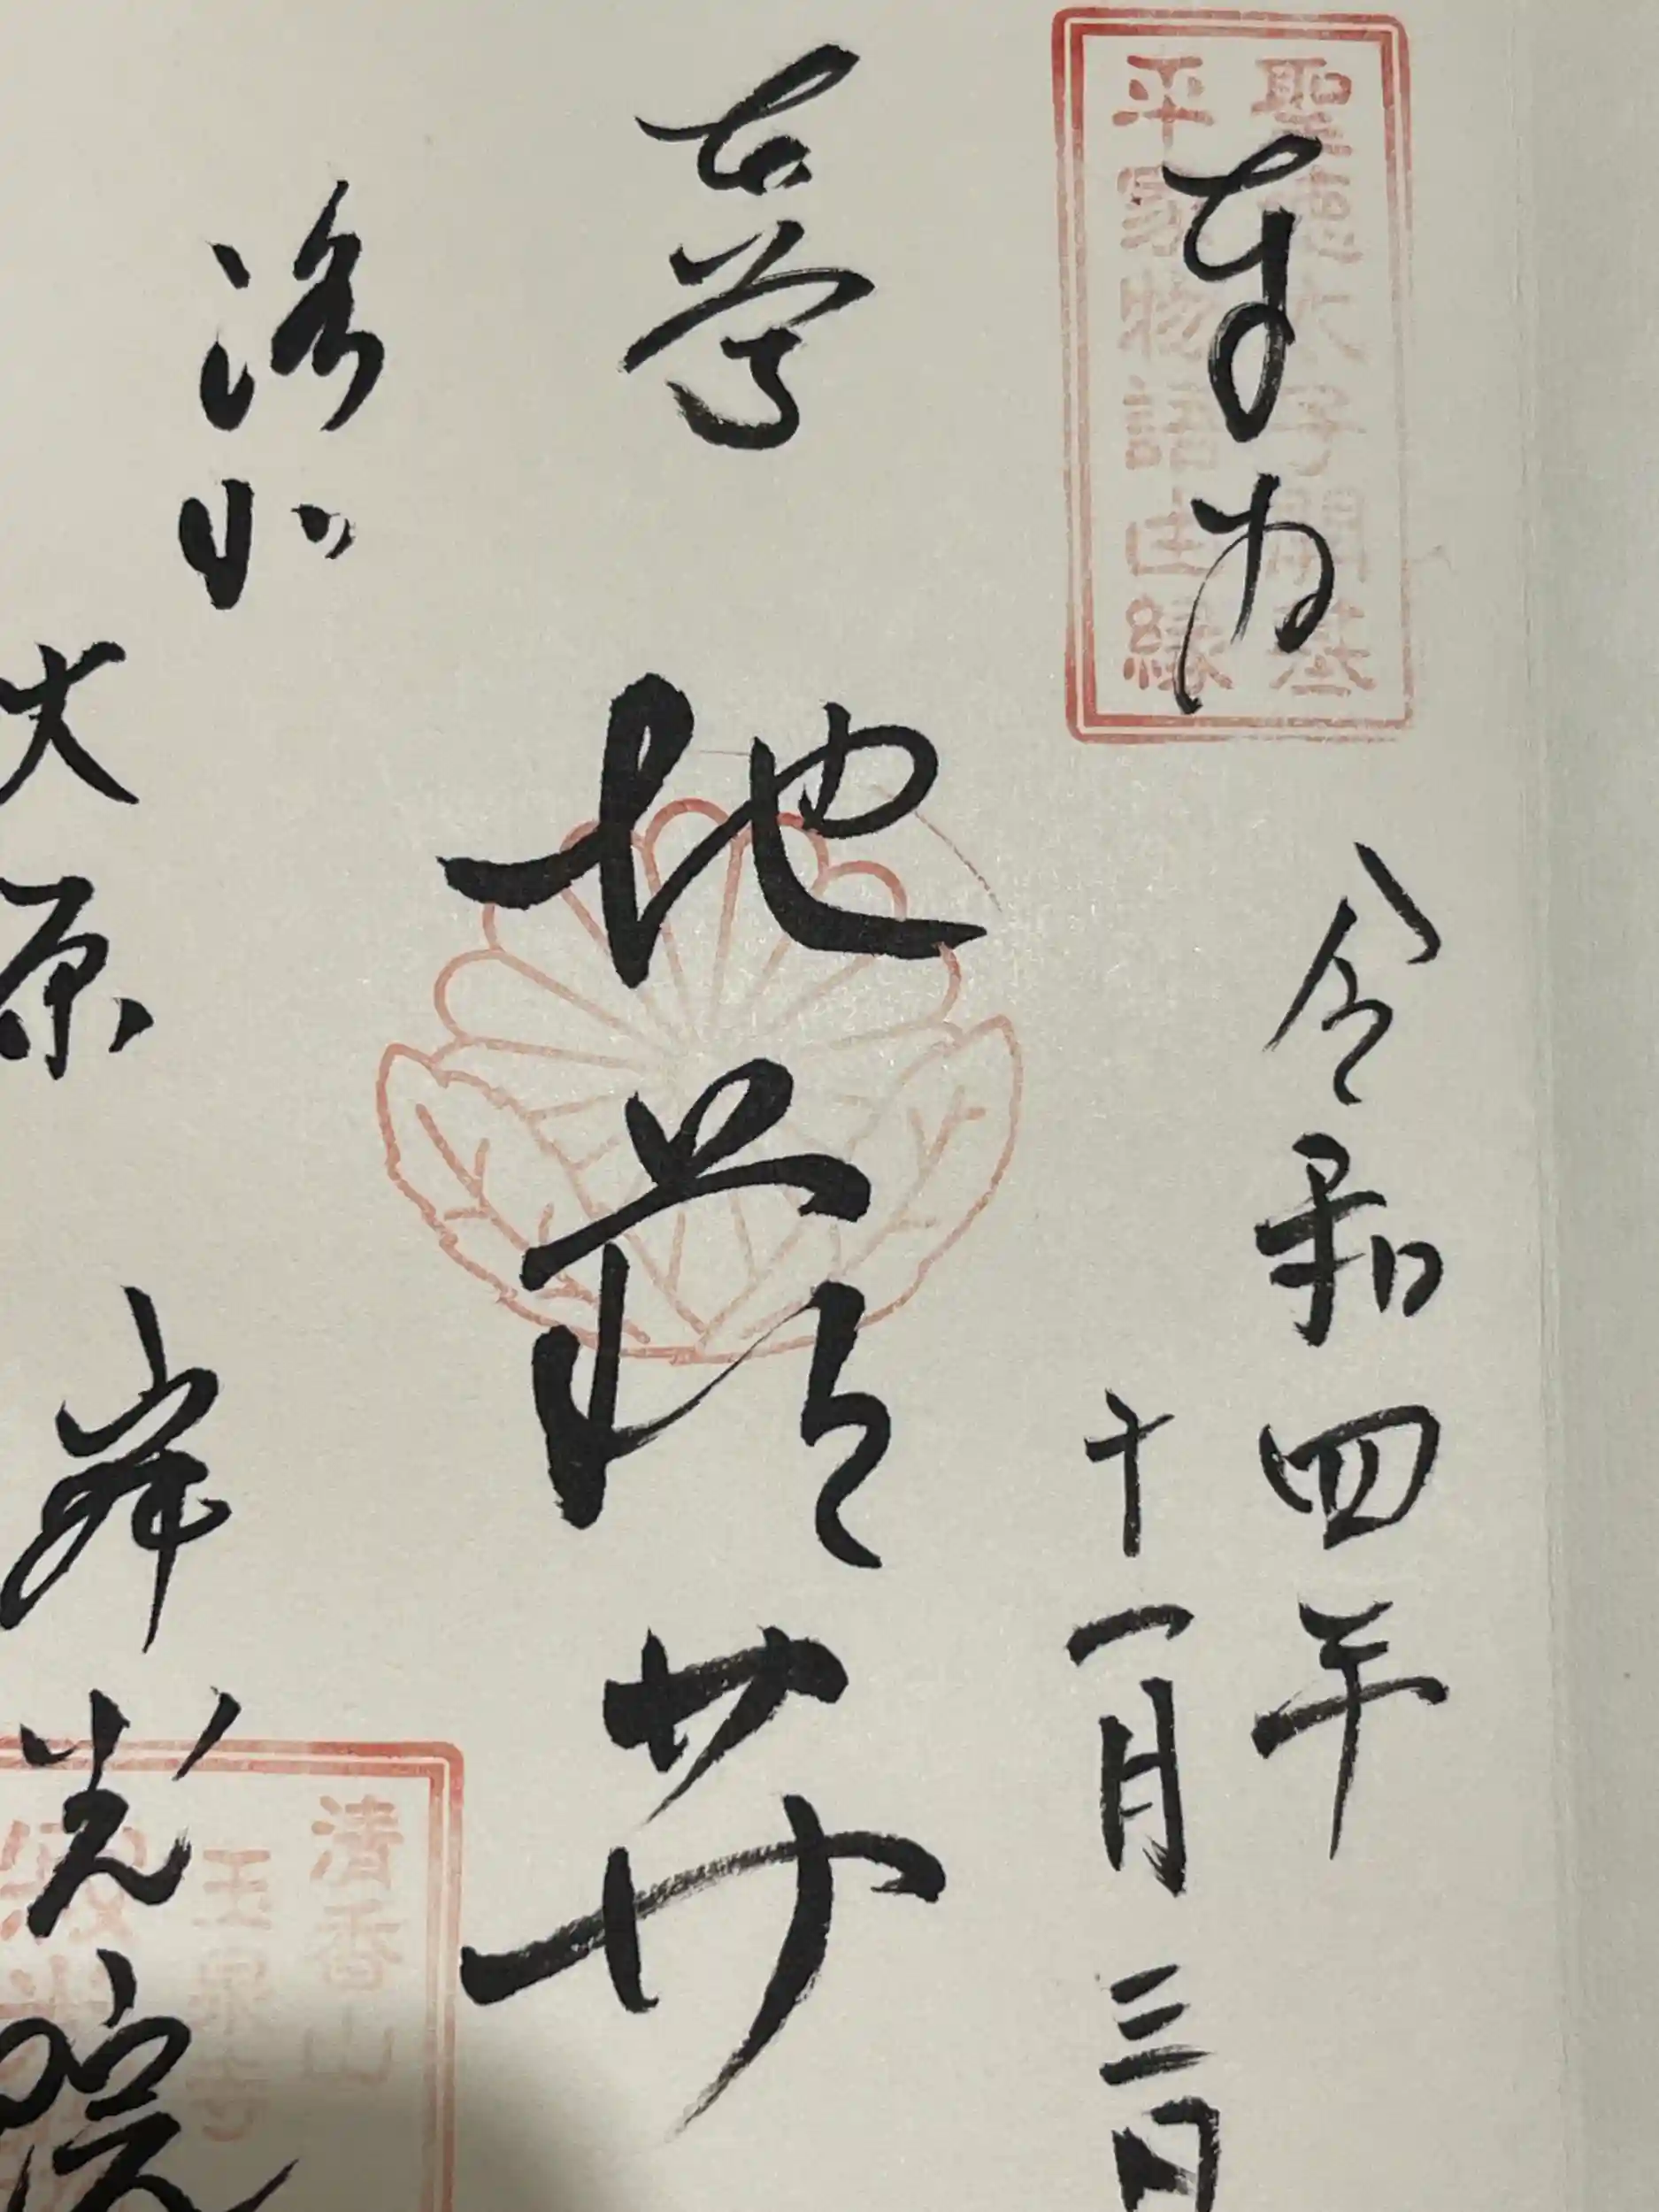 聖徳大子開基
平家物語由縁
奉拝
令和四年
十一月三日
地蔵𦬇
洛北
大原
寂光院
清香山
玉泉寺